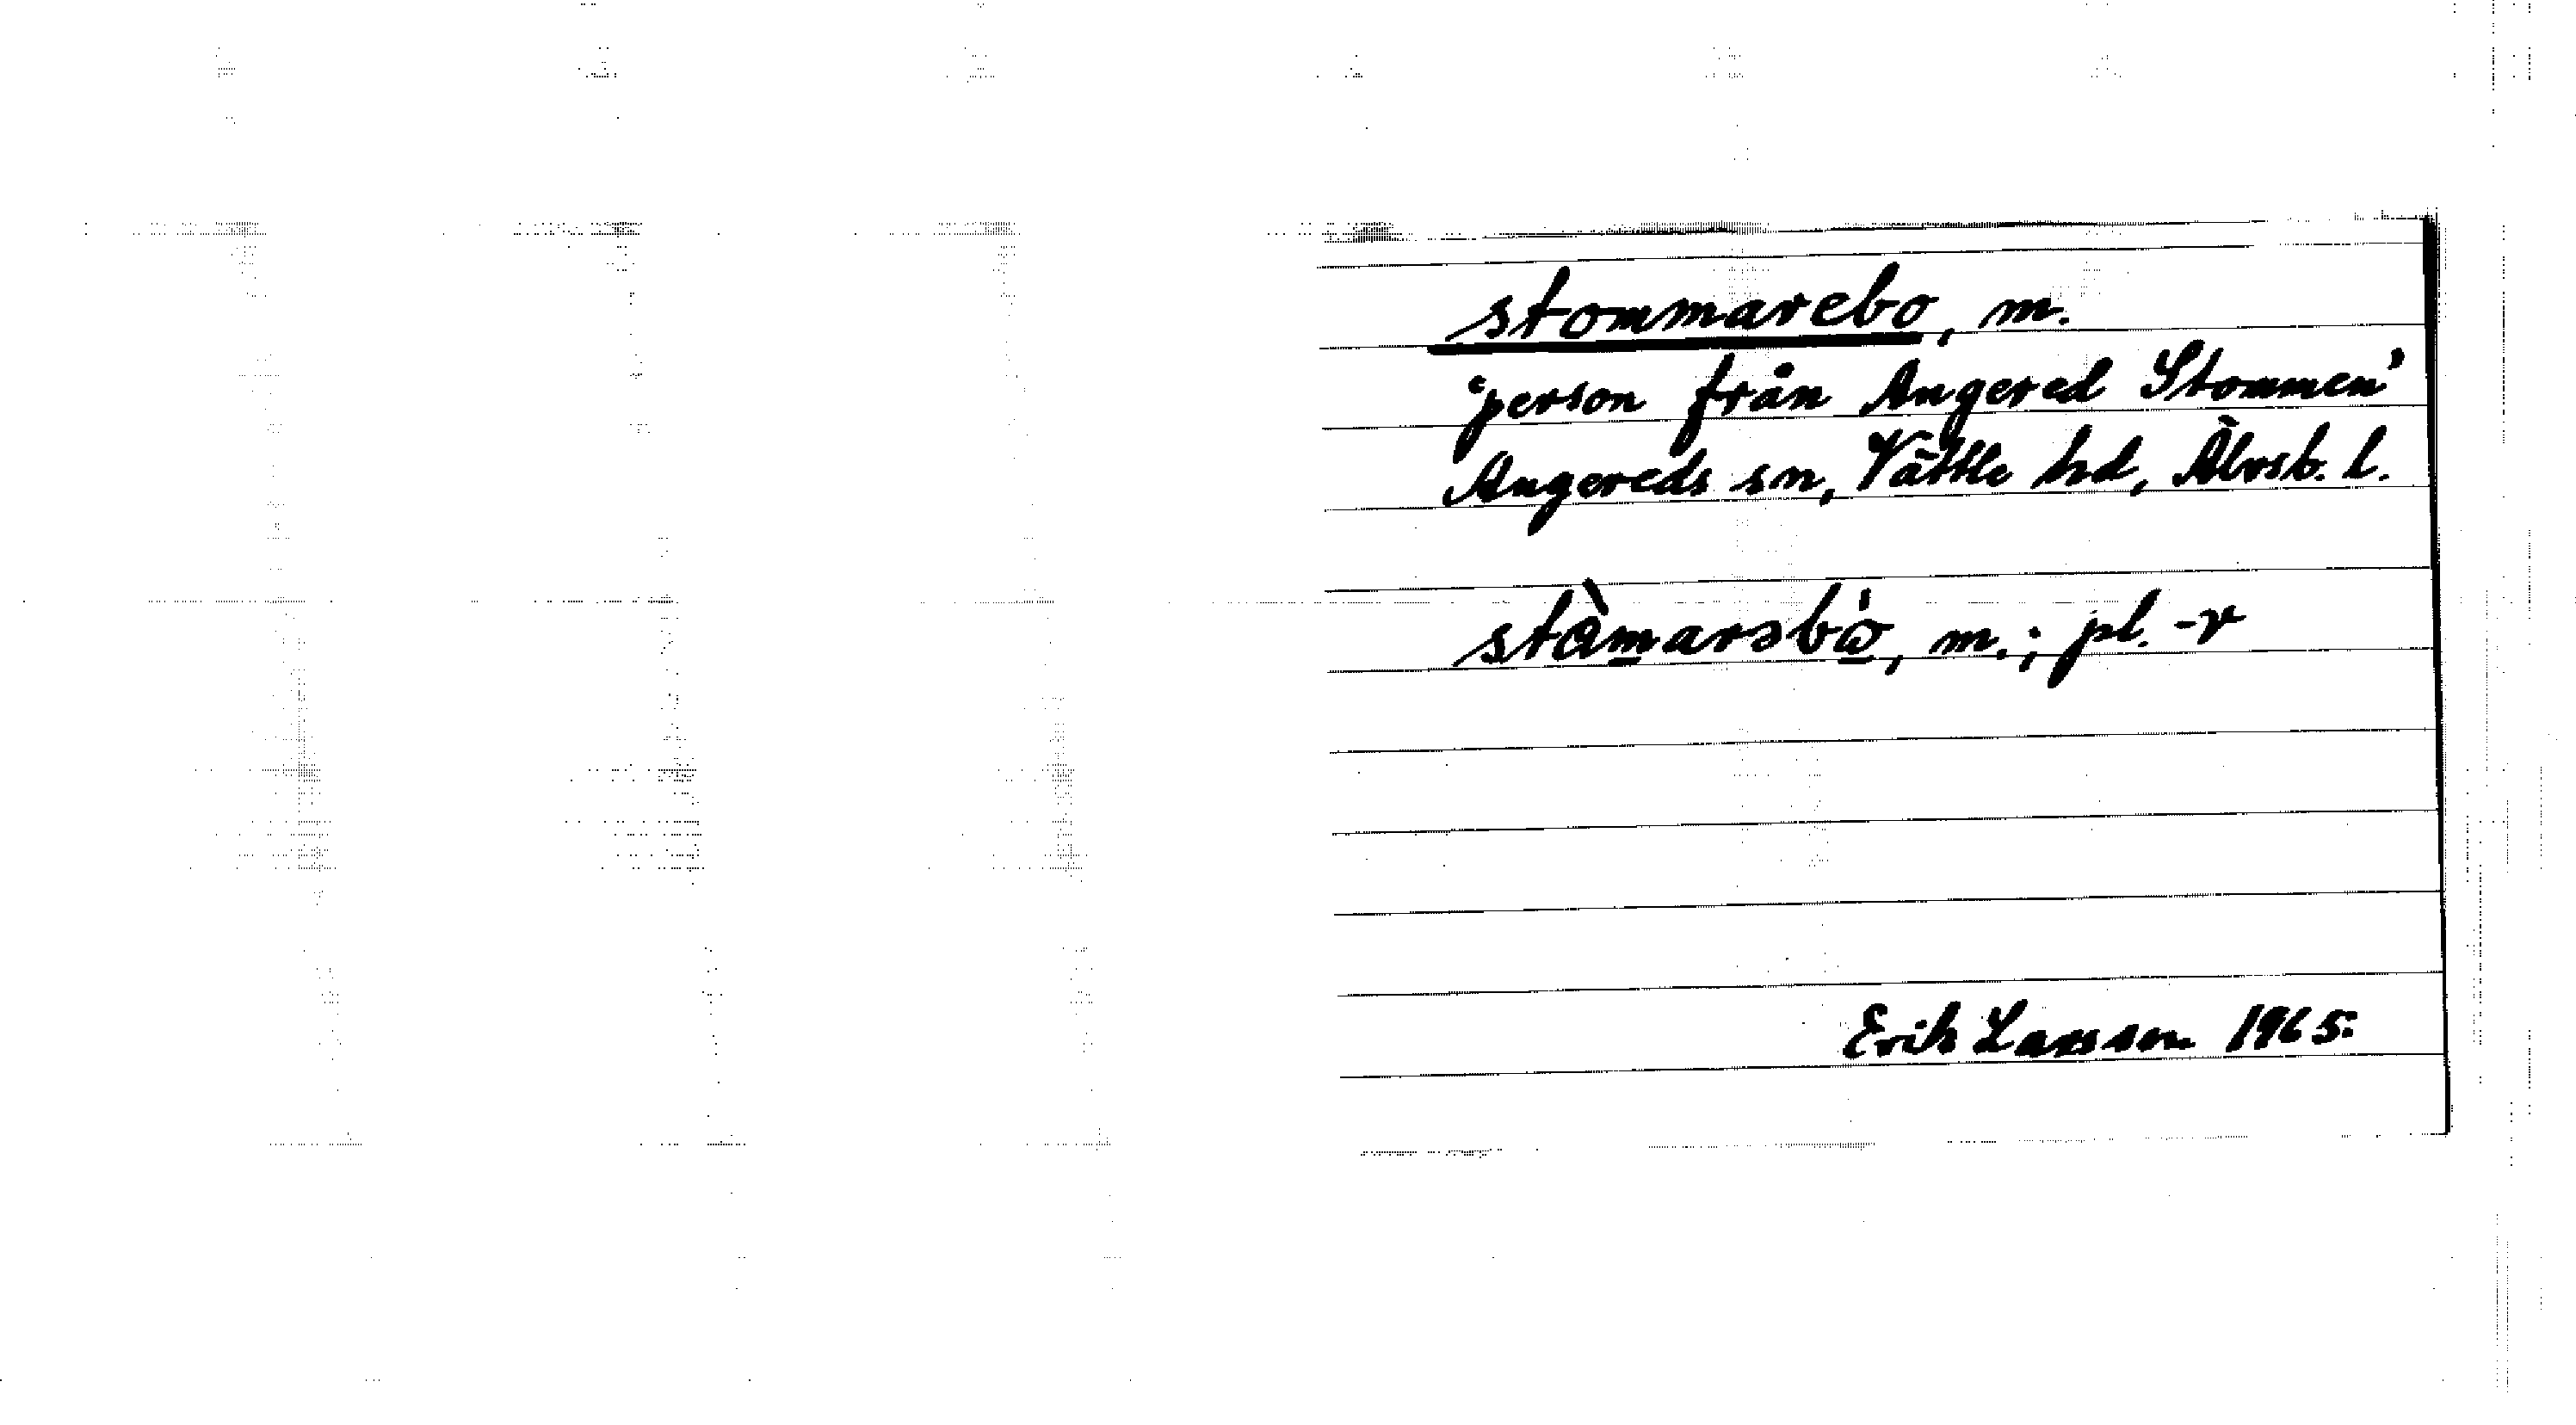 stommarebo, m.
'person från Angered Stommen'
Angereds sn, Vättle hd, Älvsb. l.
stàmarəbò, m.; pl. -r
Erik Larsson 1965.